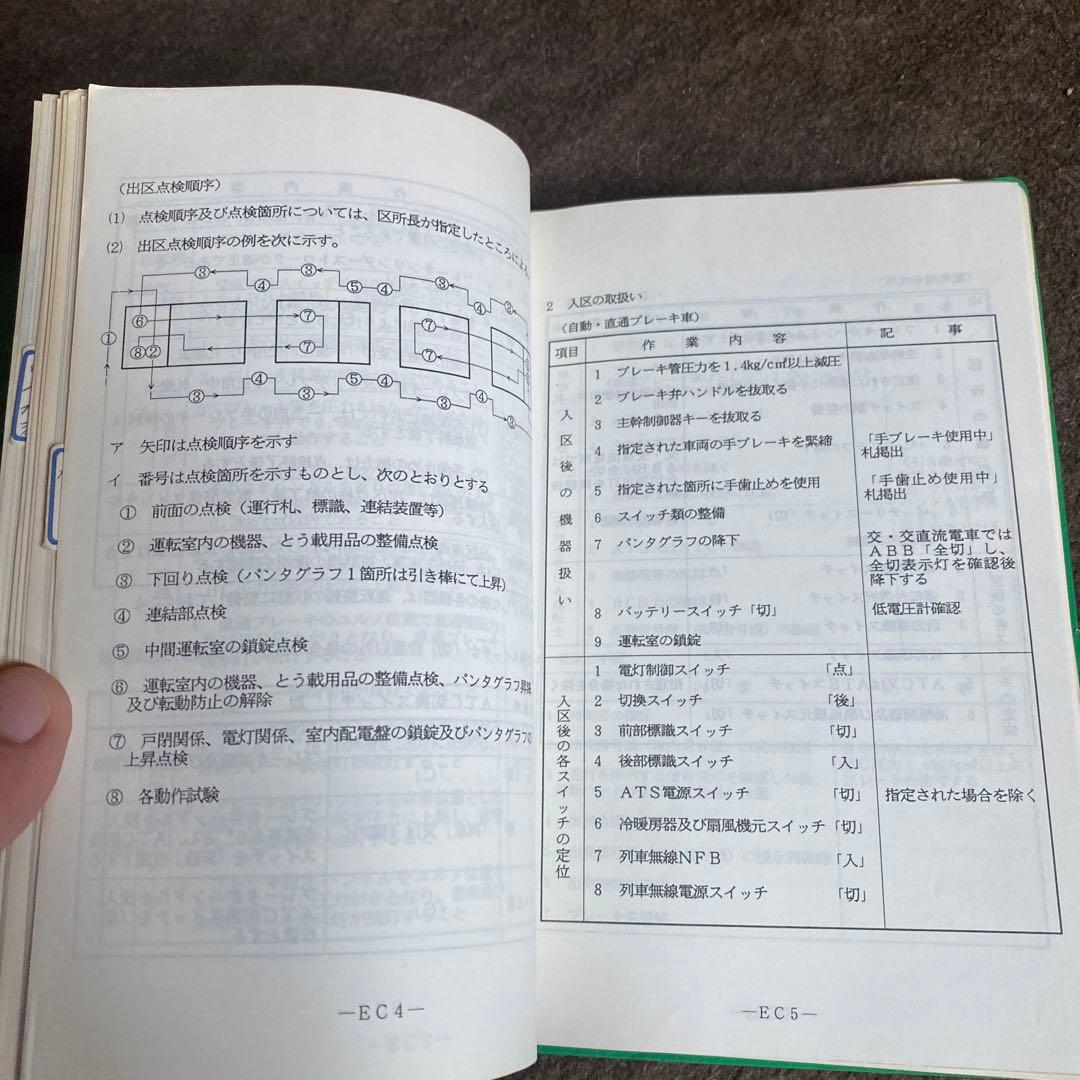 (出区点検順序)
(1) 点検順序及び点検箇所については、区所長が指定したところによ
(2) 出区点検順序の例を次に示す。
③ ③ ③
④ ④ ⑤ ④ ④
① ⑥ ⑦ ⑦
⑧② ⑦ ⑦
④ ⑤ ④ ④
③ ③ ③ ③
ア 矢印は点検順序を示す
イ 番号は点検箇所を示すものとし、次のとおりとする
① 前面の点検(運行札、標識、連結装置等)
② 運転室内の機器、とう載用品の整備点検
③ 下回り点検(パンタグラフ1箇所は引き棒にて上昇)
④ 連結部点検
⑤ 中間運転室の鎖錠点検
⑥ 運転室内の機器、とう載用品の整備点検、パンタグラフ
及び転動防止の解除
⑦ 戸閉関係、電灯関係、室内配電盤の鎖錠及びパンタグラフの
上昇点検
⑧ 各動作試験
―EC4―
2 入区の取扱い
(自動・直通ブレーキ車)
項目 作業内容 記事
入区後の機器扱い
1 ブレーキ管圧力を1.4kg/c㎡以上減圧
2 ブレーキ弁ハンドルを抜取る
3 主幹制御器キーを抜取る
4 指定された車両の手ブレーキを緊締 「手ブレーキ使用中」
札掲出
5 指定された箇所に手歯止めを使用 「手歯止め使用中」
札掲出
6 スイッチ類の整備
7 パンタグラフの降下 交・交直流電車では
ABB「全切」し、
全切表示灯を確認後
降下する
8 バッテリースイッチ「切」 低電圧計確認
9 運転室の鎖錠
入区後の各スイッチの定位
1 電灯制御スイッチ 「点」
2 切換スイッチ 「後」
3 前部標識スイッチ 「切」
4 後部標識スイッチ 「入」
5 ATS電源スイッチ 「切」 指定された場合を除く
6 冷暖房器及び扇風機元スイッチ「切」
7 列車無線NFB 「入」
8 列車無線電源スイッチ 「切」
―EC5―